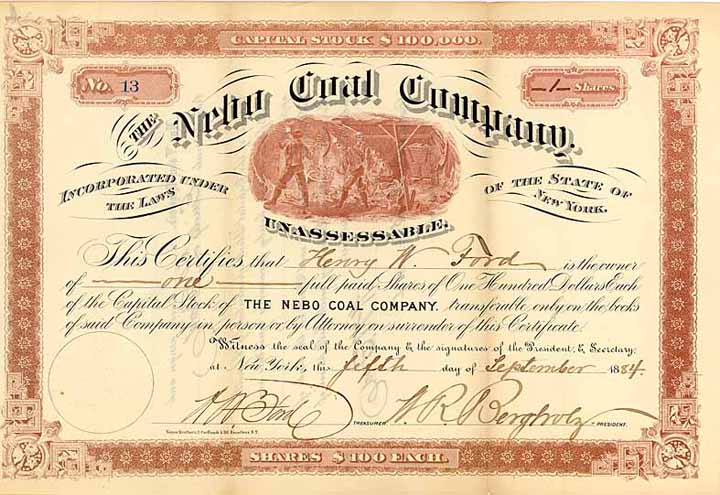 CAPITAL STOCK $100,000.
No. 13
-1- Shares
THE Nebo Coal Company.
INCORPORATED UNDER THE LAWS
OF THE STATE OF NEW YORK.
UNASSESSABLE.
This Certifies that Henry W. Ford is the owner
of one full paid Shares of One Hundred Dollars Each
of the Capital Stock of THE NEBO COAL COMPANY. transferable only on the books
of said Company in person or by Attorney on surrender of this Certificate.
Witness the seal of the Company & the signatures of the President & Secretary:
at New York, this fifth day of September 1884.
H W Ford TREASURER. R. Bergholz PRESIDENT.
SHARES $100 EACH.